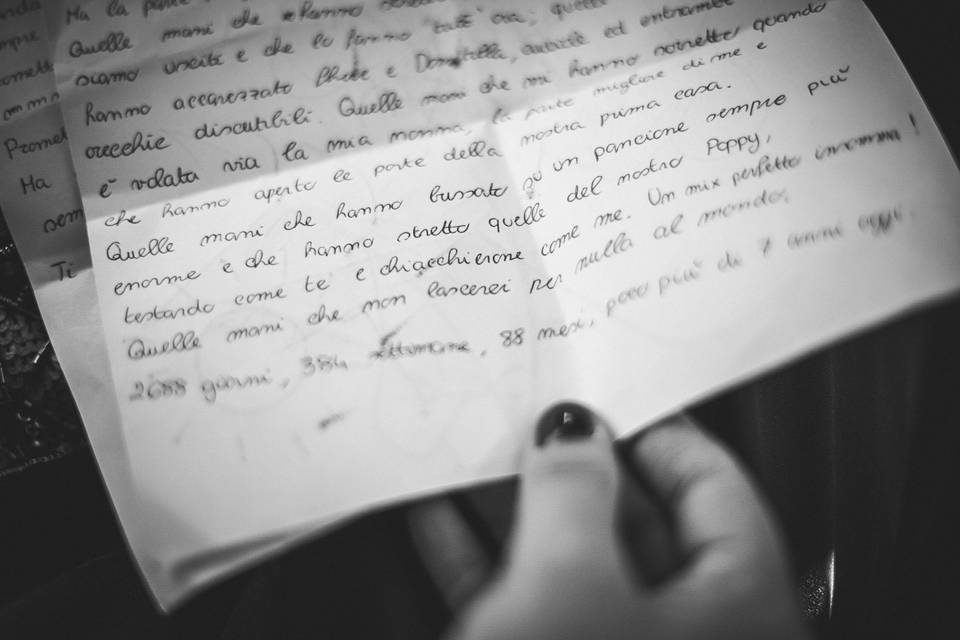 Ha la
Quelle mani che
siamo usciti e che lo fanno tutt'ora; quelle
hanno accarezzato Phebe e Donatella, avanti ed entrambe
orecchie discutibili. Quelle mani che mi hanno sorretto quando
è volata via la mia nonna, la parte migliore di me e
che hanno aperto le porte della nostra prima casa.
Quelle mani che hanno bussato su un pancione sempre più
enorme e che hanno stretto quelle del nostro Poppy,
testardo come te e chiacchierone come me. Un mix perfetto insomma!
Quelle mani che non lascerei per nulla al mondo.
2688 giorni, 384 settimane, 88 mesi, poco più di 7 anni oggi.
Promet
Ha
sem
Ti